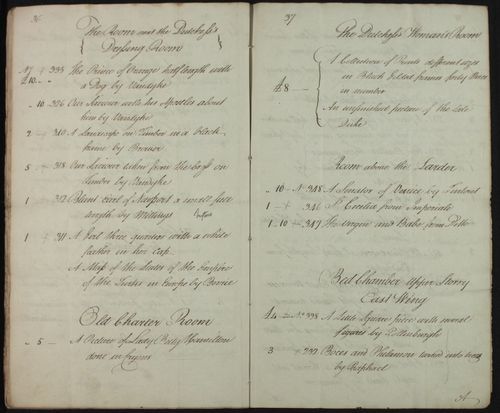 36
The Room next the Dutchess's
Dressing Room
335 The Prince of Orange half length with
a Dog by Vandyke
10 336 Our Saviour with his Apostles about
him by Vandyke
2 340 A Landscape on Timber in a black
frame by Brower
5 318 Our Saviour taken from the Cross on
Timber by Vandyke
1 312 Blunt Earl of Newport a small full
length by
1 311 A Girl three quarters with a white
feather in her Cap
A Map of the of the Empire
of the in Europe by
Old Charter Room
5 A Picture of Lady Betty Hamilton
done in Crayons
37
The Dutchess's Woman's Room
A Collection of Prints different sizes
in Black Ebbed frames forty three
in number
£8
An unfinished picture of the Late
Duke
Room above the Larder
10 No 348 A Senator of Venice by Tintoret
1 346 St Cecilia from Imperiale
1 10 347 The Virgin and Babe from Ditto
Bed Chamber Upper Storry
East Wing
£4 No 398 A Little Square Piece with several
figures by
3 by Raphael
A